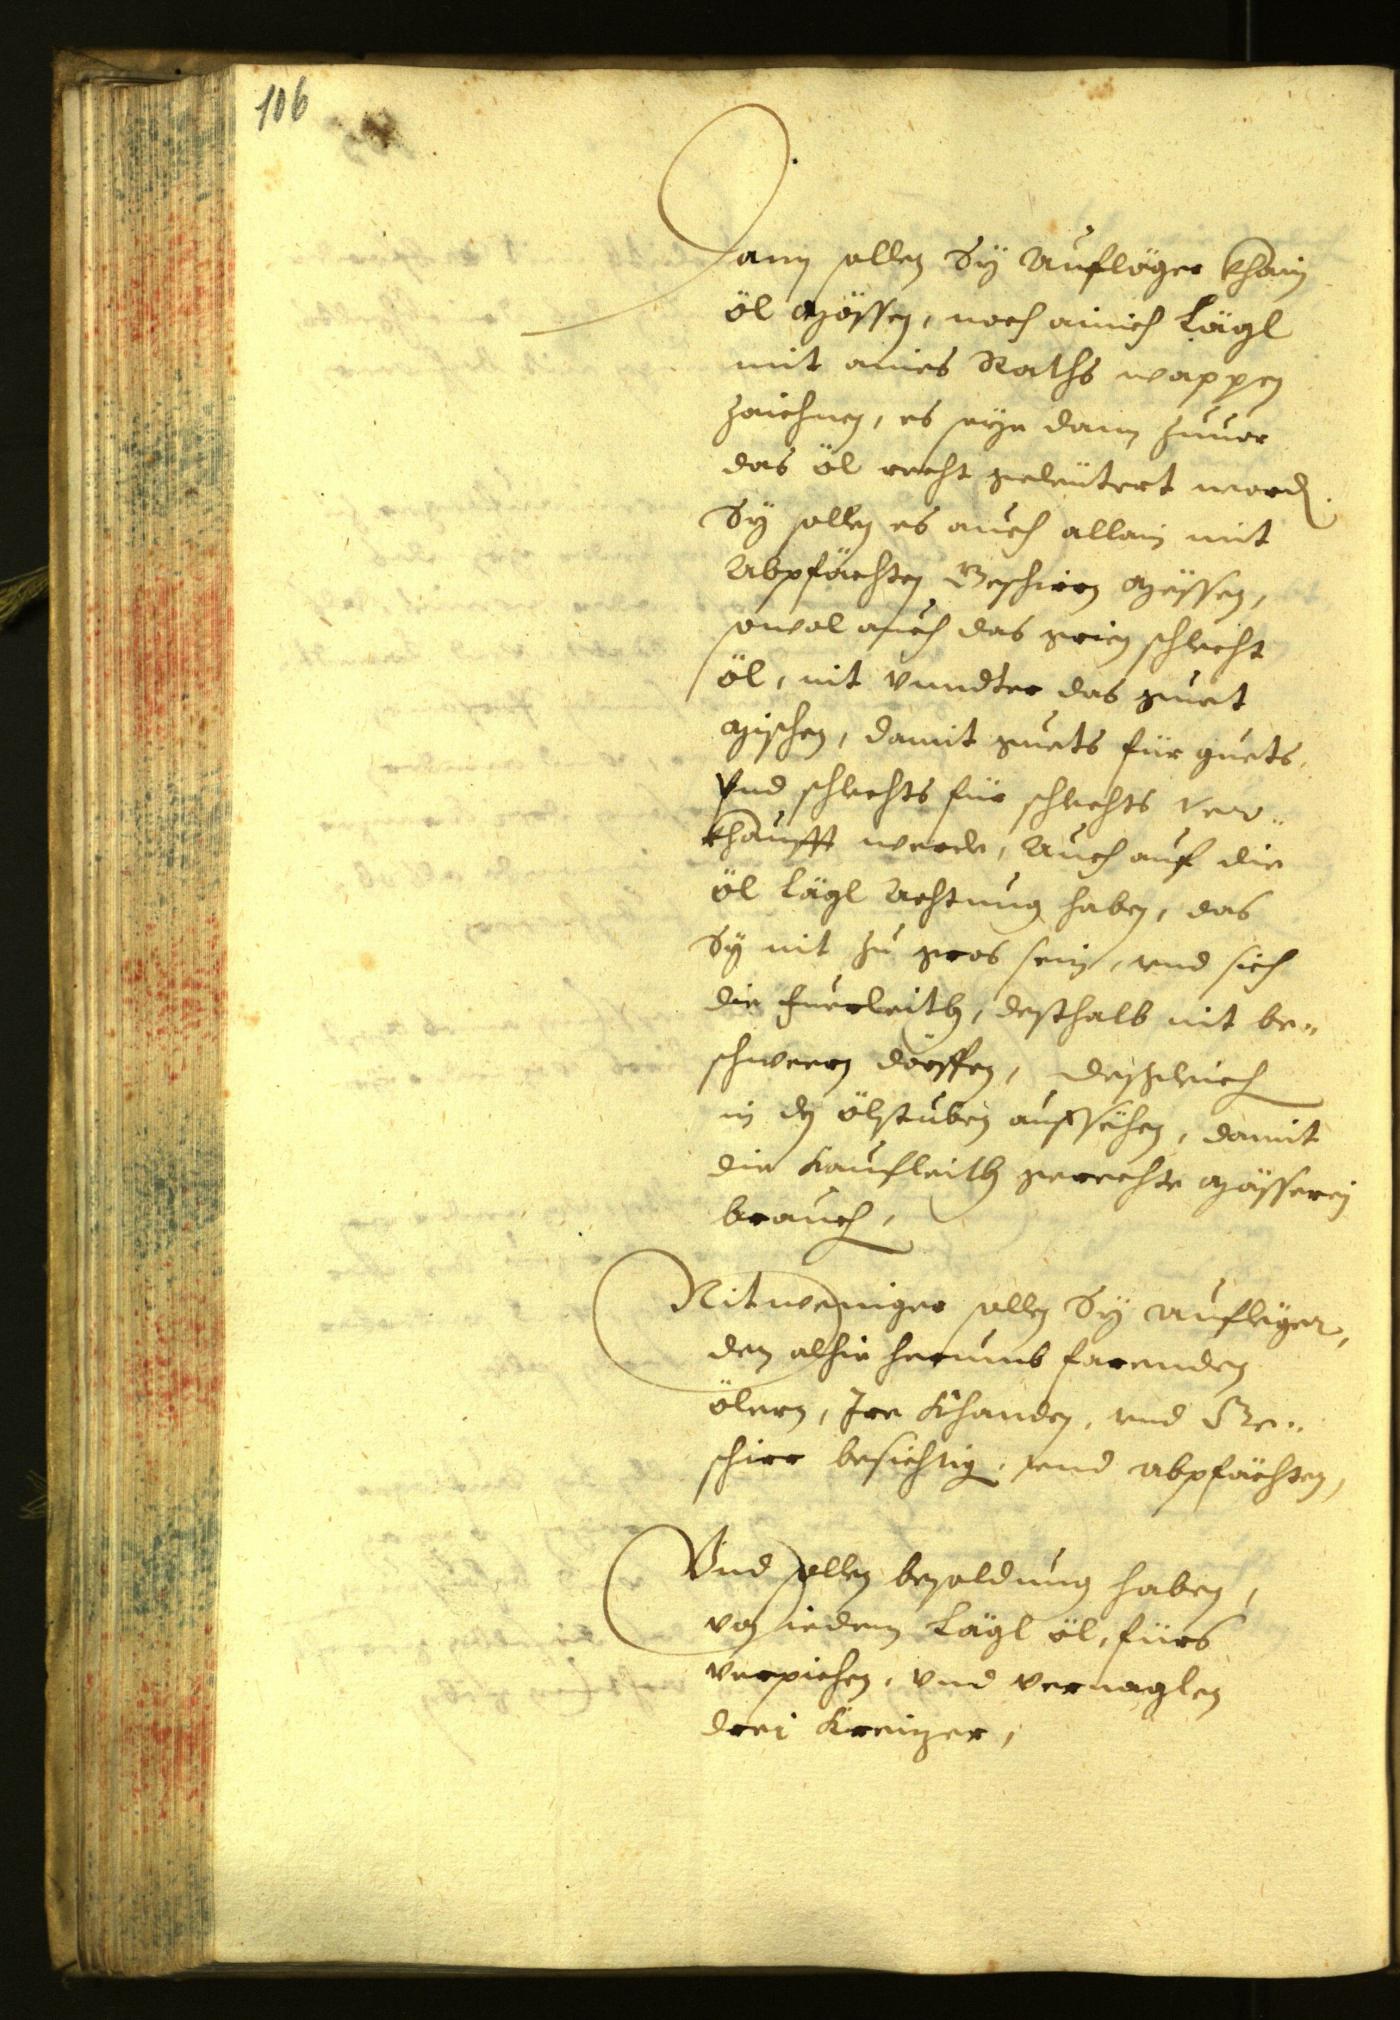 106
Dann sollen Sÿ Aufläger khain
öl Mössen, noch ainich Lägl
mit aines Raths wappen
zaichnen, es seÿe dann zuuor
das öl recht geleütert word.
Sÿ sollen es auch allain mit
Abpfächten Beschirrn Mëssen,
sowol auch das grien schlecht
öl, nit vnndter das guet
Mischen, damit guets für guets,
Vnd schlechts für schlechts ver„
khaufft werde, Auch auf die
öl Lägl Achtung haben, das
Sÿ nit zu gros sein, vnd sich
die Fuerleith, desthalb nit be„
schweern dörffen, dessgleich
in den ölstuben aufsëhen, damit
die Kaufleith gerechte Mässereÿ
brauch,
Nit weniger sollen Sÿ Aufleger,
den alhie herumb farenden
ölern, Ire Khanden, vnd Ge„
schirr besichtig, vnd abpfächten,
Vnd sollen besoldung haben,
von iedem Lägl öl, fürs
verpichen, vnd vernaglen
drei Kreizer,